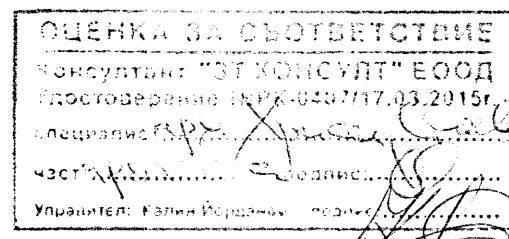 ОЦЕНКА ЗА СЪОТВЕТСТВИЕ
Консултант "ЗТ КОНСУЛТ" ЕООД
Удостоверение №РК-0407/17.03.2015г.
специалист
част подпис
Управител: Калин Йорданов подпис